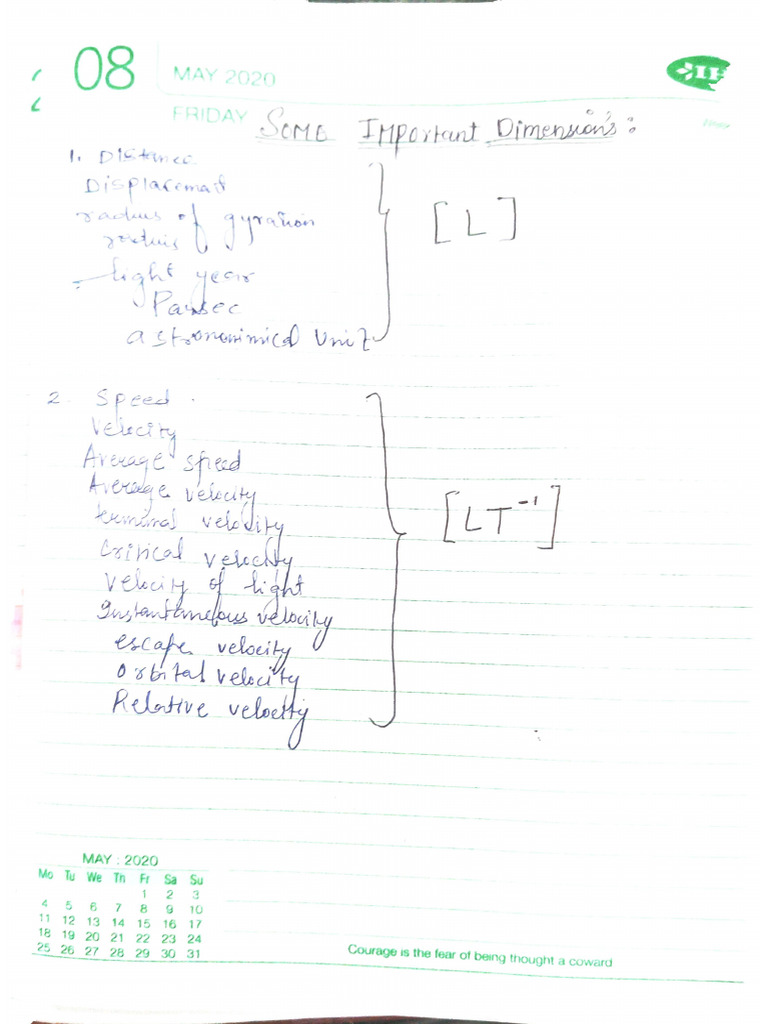 08
MAY 2020
FRIDAY
SOME IMPortant Dimension's:
1. Distance
Displacemat
radius of gyration
radius
light year
Parsec
astronomimical Unit
[L]
2. Speed
Velocity
Average speed
Average velocity
terminal velocity
Critical velocity
Velocity of light
Instantaneous velocity
escape velocity
orbital velocity
Relative velocity
[LT⁻¹]
MAY : 2020
Mo Tu We Th Fr Sa Su
1 2 3
4 5 6 7 8 9 10
11 12 13 14 15 16 17
18 19 20 21 22 23 24
25 26 27 28 29 30 31
Courage is the fear of being thought a coward